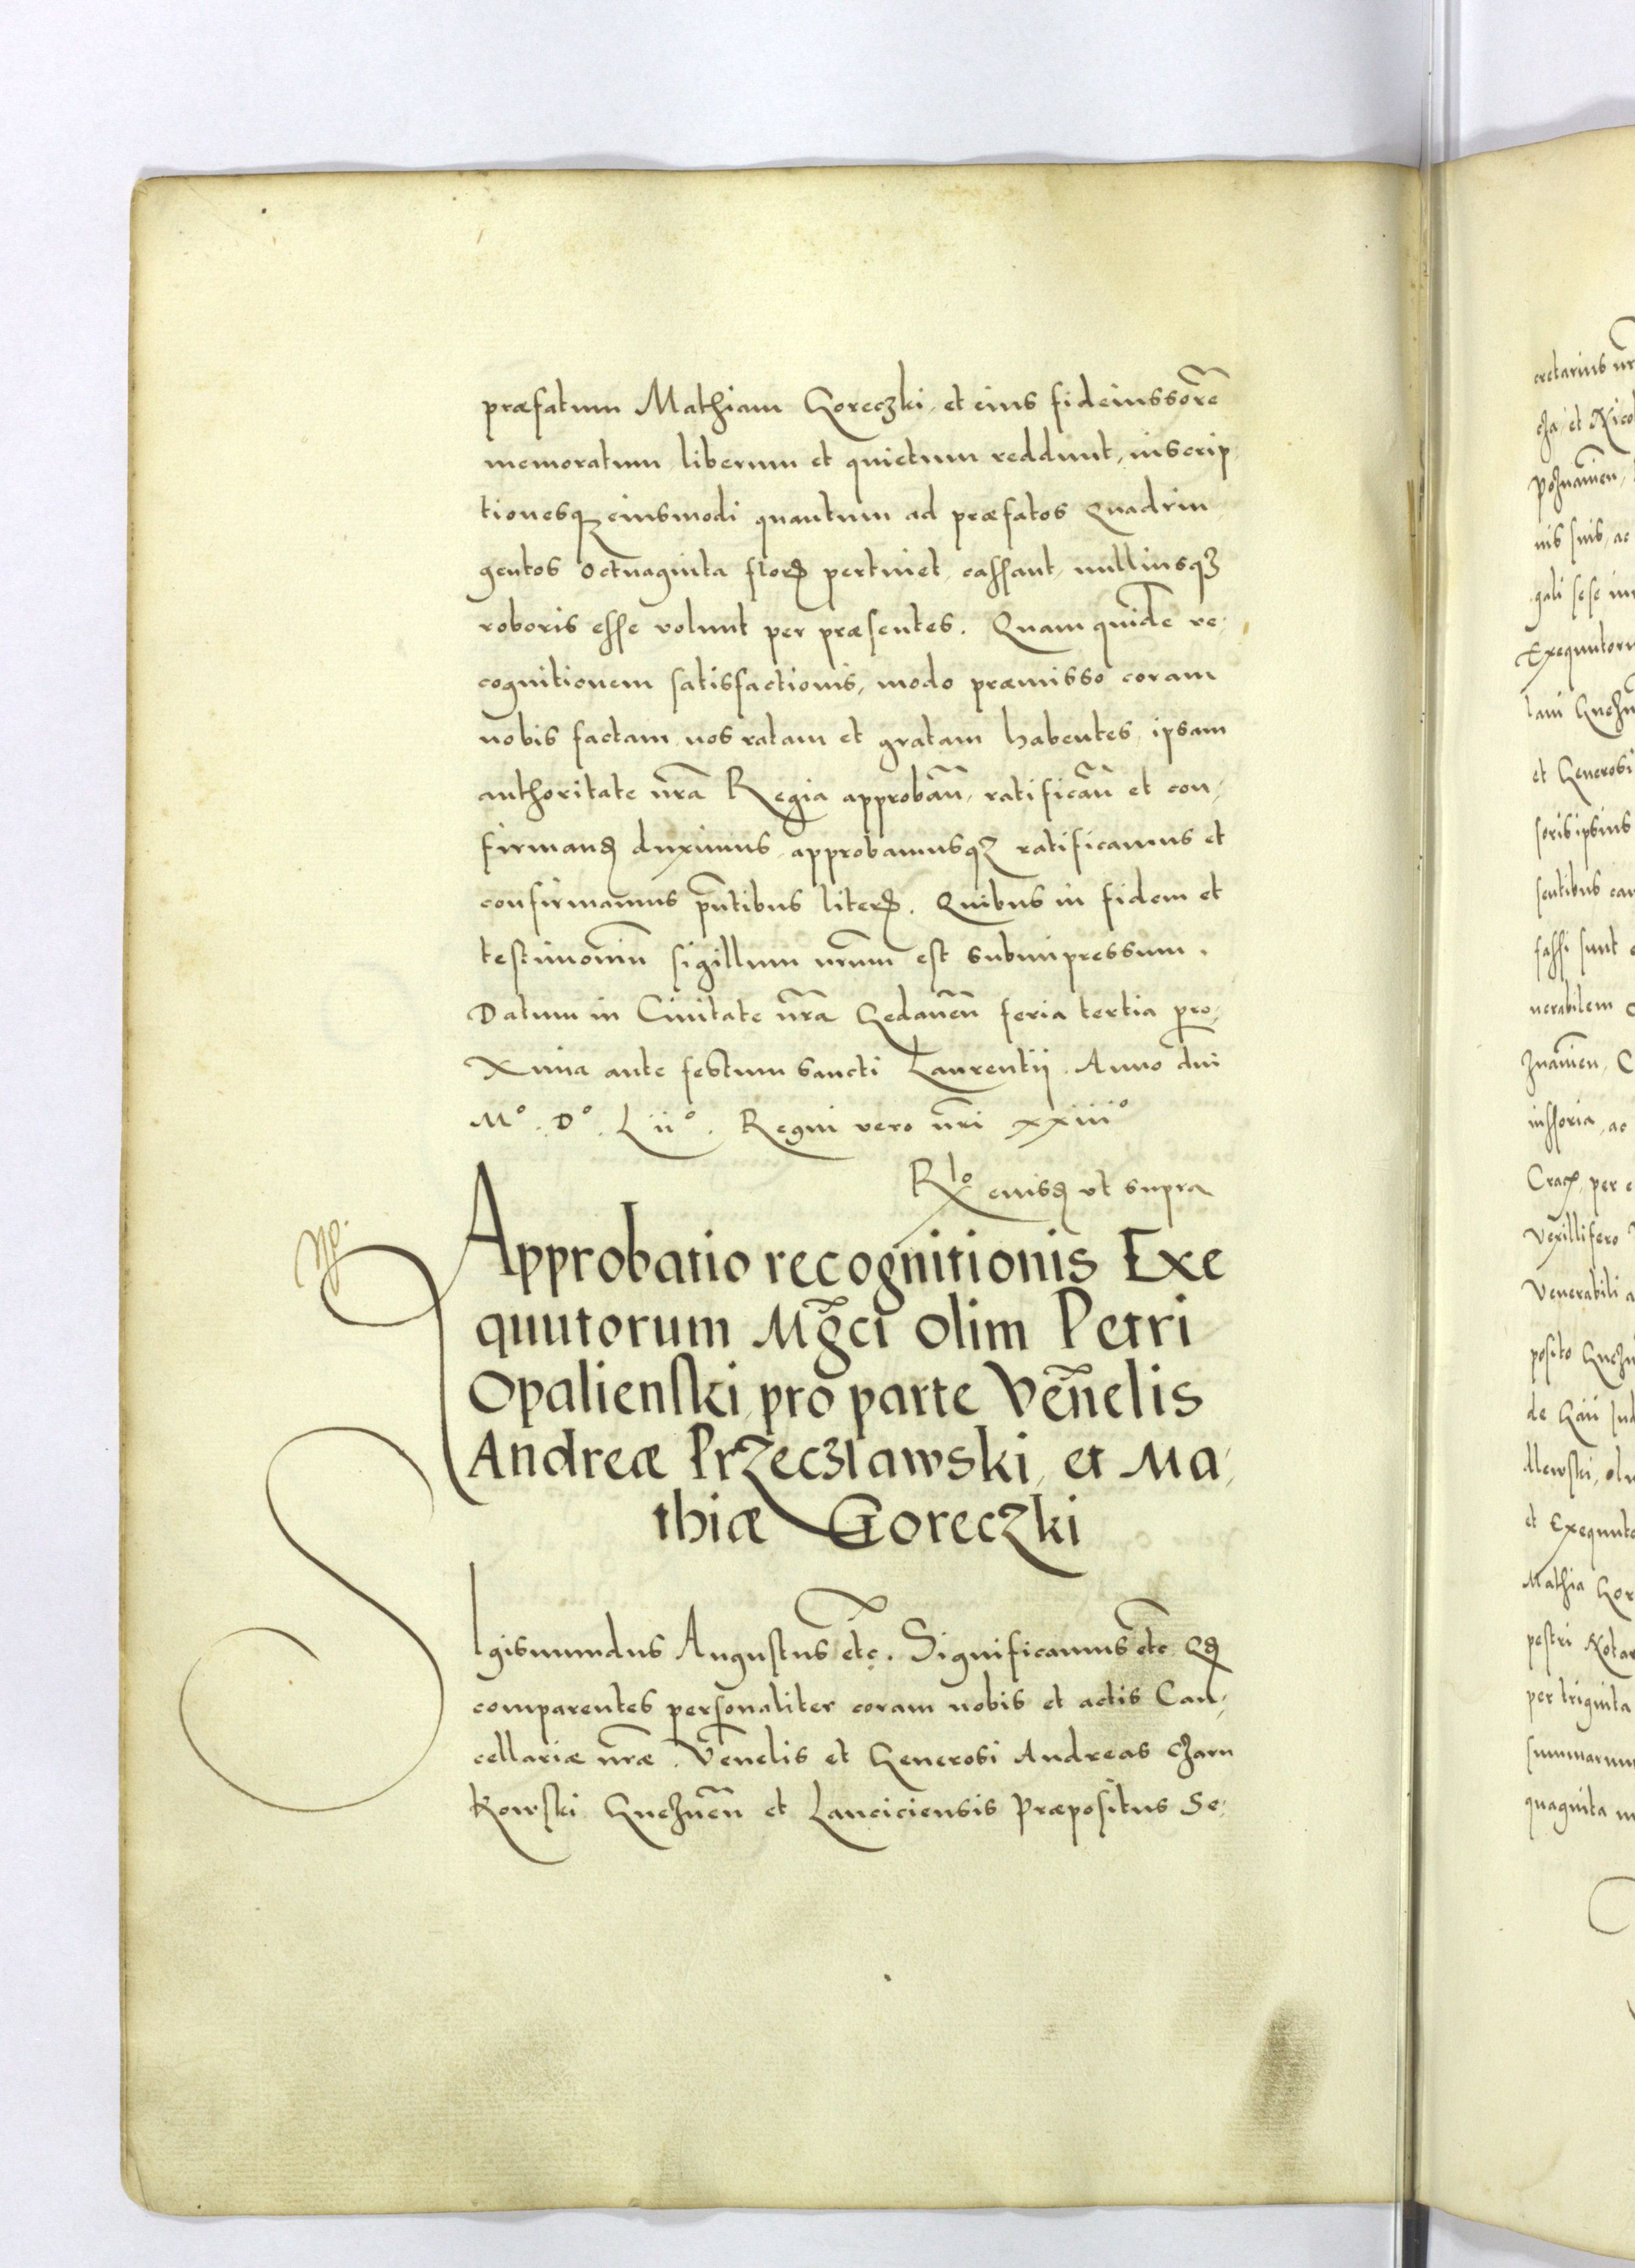 præfatum Mathiam Goreczki, et eius fideiussorẽ
memoratum liberum et quietum reddunt, inscrip,
tionesq; eiusmodi quantum ad præfatos Quadrin
gentos octuaginta floꝝ pertinet, cassant, nulliusqꝫ
roboris esse volunt per præsentes. Quam quidẽ re,
cognitionem satisfactionis, modo præmisso coram
nobis factam, nos ratam et gratam habentes, ipsam
authoritate nr̃a Regia approbañ, ratificañ et con,
firmanꝝ duximus, approbamusqꝫ ratificamus et
confirmamus pñtibus literꝝ. Quibus in fidem et
testimoniũ sigillum nr̃um est subimpressum.
Datum in Ciuitate nr̃a Gedaneñ feria tertia pro,
xima ante festum Sancti Laurentij. Anno dñi
Mº. Dº. Liiº. Regni vero nr̃i xxiiiº
Rlº eiusꝝ vt supra
Approbatio recognitionis Exe
quutorum Mg̃ci olim Petri
Opalienski, pro parte Veñelis
Andreæ Przeczlawski, et Ma,
thiæ Goreczki
Sigismundus Augustus etc̃. Significamus etc̃ Qꝝ
comparentes personaliter coram nobis et actis Can,
cellariæ nr̃æ. Veñelis et Generosi Andreas Czarn
kowski Gnezneñ et Lanciciensis Præpositus Se,
cretarius nr
cza, et Nicol
Poznanieñ,
nis suis, ac
gali sese in
Exequutoru
lani Gnezn
et Generosi
soris ipsius
sentibus ean
fassi sunt
nerabilem
znanieñ, C
iussoria, ac
Crac, per e
Vexillifero
Venerabili a
posito Gnezn
de
et Exequuto
Mathia Gor
pestri Notar
per triginta
summarum
quaginta